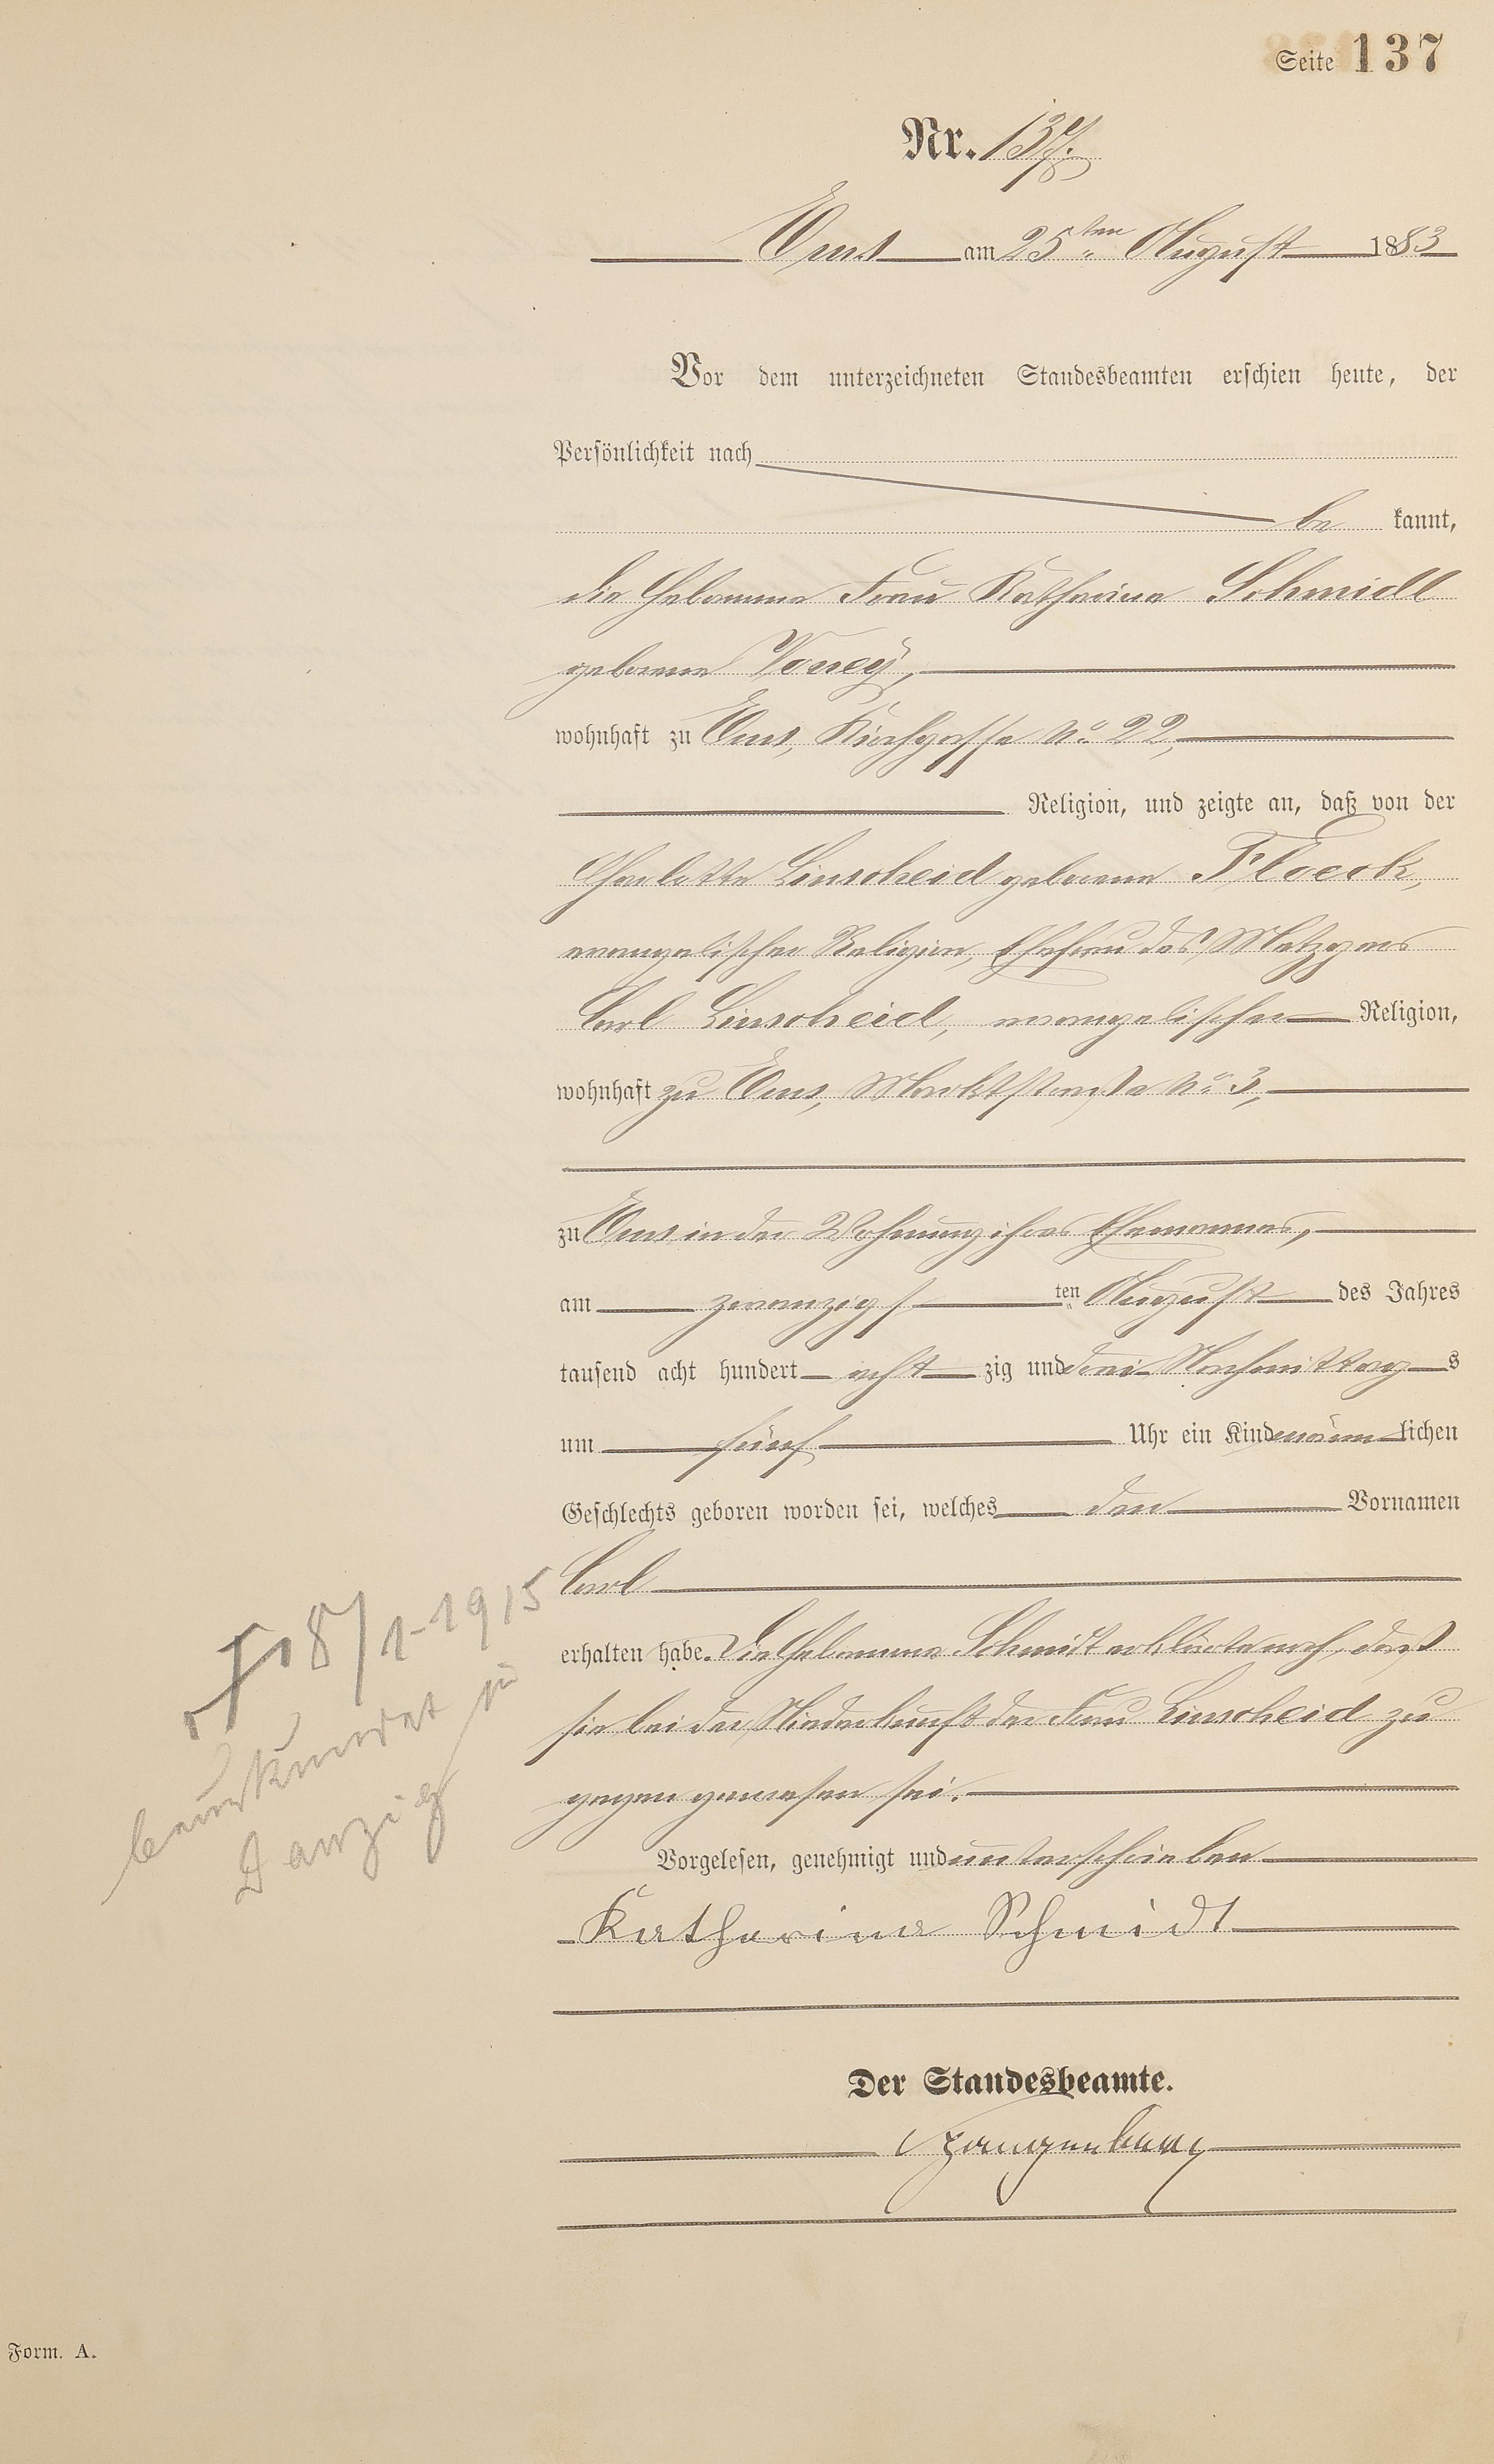 Seite 137
Nr. 137.
Ems am 25ten August 1883
Vor dem unterzeichneten Standesbeamten erschien heute, der
Persönlichkeit nach
be kannt,
die Hebamme Frau Katharina Schmidt
geborene
wohnhaft zu Ems, Kirchgasse No 22,
Religion, und zeigte an, daß von der
Charlotte Linscheid geborene Flöck,
evangelischer Religion, Ehefrau des Metzgers
Carl Linscheid, evangelischer Religion,
wohnhaft zu Ems, Marktstraße No 3,
zu Ems in der Wohnung ihres Ehemannes,
am zwanzigsten August des Jahres
tausend acht hundert acht zig und drei Nachmittags
um fünf Uhr ein Kind männlichen
Geschlechts geboren worden sei, welches den Vornamen
Carl
erhalten habe. Die Hebamme Schmidt erklärte noch, daß
sie bei der Niederkunft der Frau Linscheid zu
gegen gewesen sei.
Vorgelesen, genehmigt und unterschrieben
Katharina Schmidt
Der Standesbeamte.
Spangenberg
† 18/1-1915
beurkundet in
Danzig
Form. A.